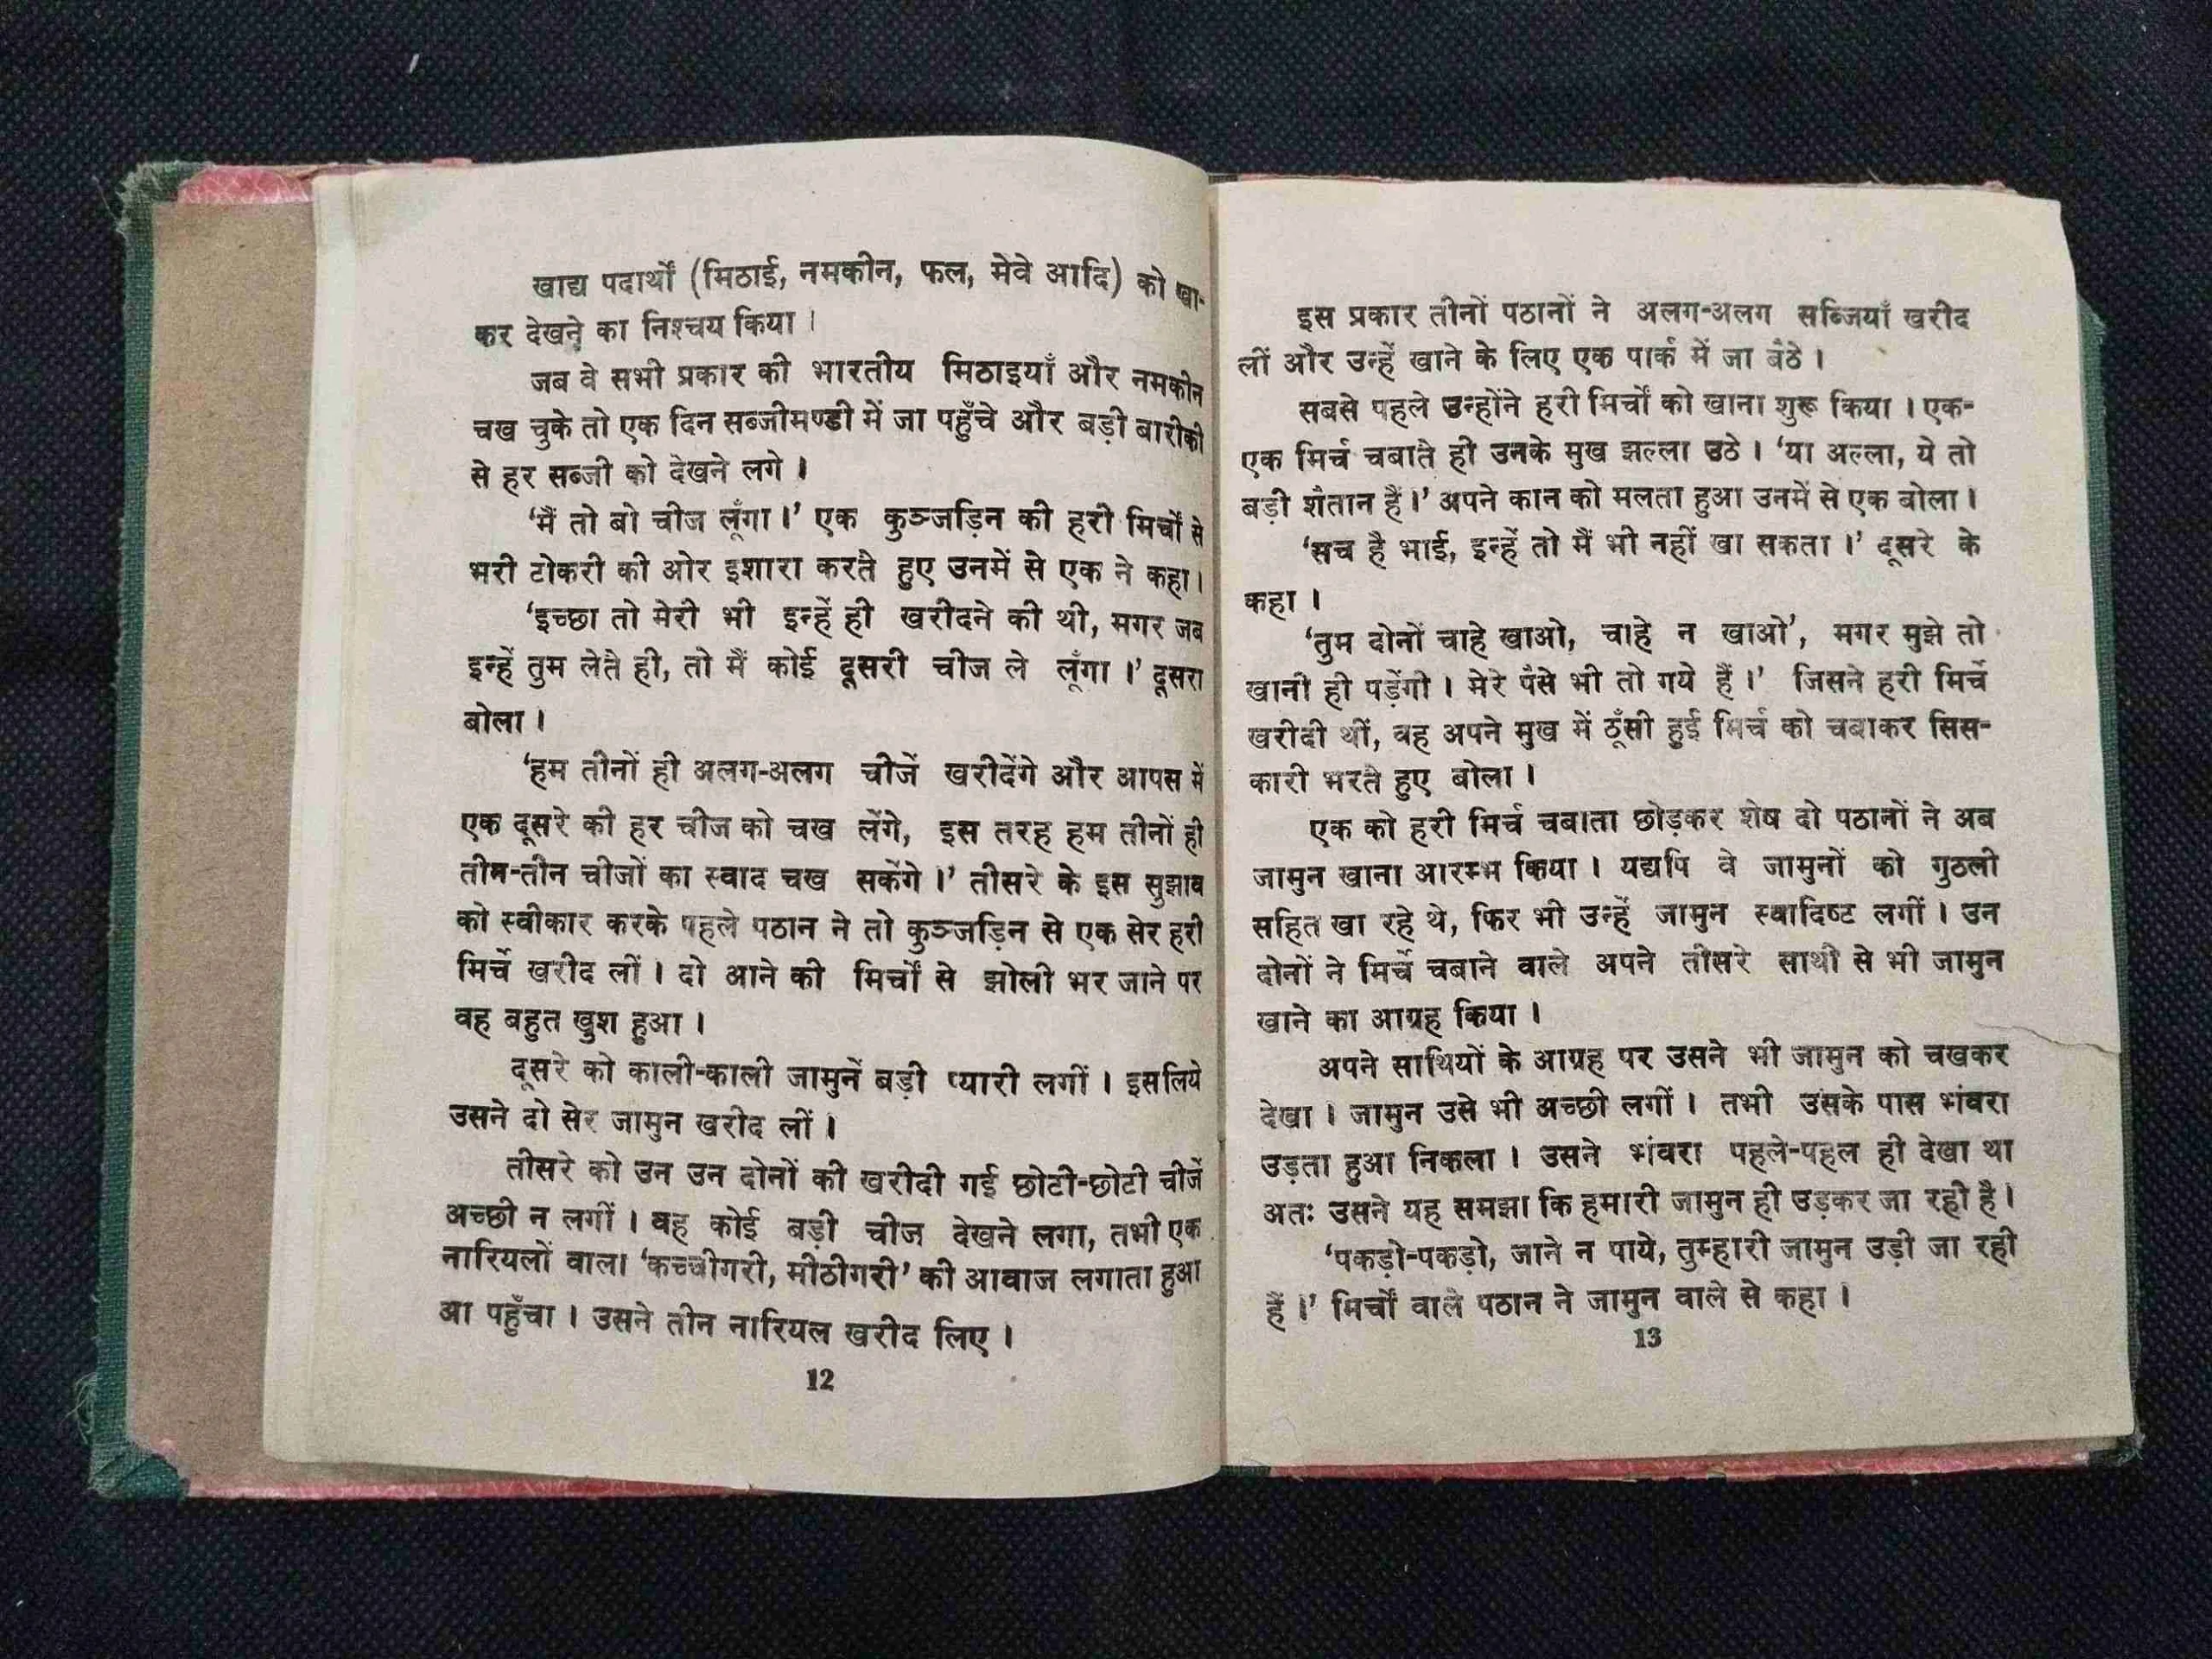 खाद्य पदार्थों (मिठाई, नमकीन, फल, मेवे आदि) को खा-
कर देखने का निश्चय किया ।
जब वे सभी प्रकार की भारतीय मिठाइयाँ और नमकीन
चख चुके तो एक दिन सब्जीमण्डी में जा पहुँचे और बड़ी बारीकी
से हर सब्जी को देखने लगे ।
'मैं तो बो चीज लूँगा ।' एक कुञ्जड़िन की हरी मिर्चों से
भरी टोकरी की ओर इशारा करते हुए उनमें से एक ने कहा ।
'इच्छा तो मेरी भी इन्हें ही खरीदने की थी, मगर जब
इन्हें तुम लेते ही, तो मैं कोई दूसरी चीज ले लूँगा ।' दूसरा
बोला ।
'हम तीनों ही अलग-अलग चीजें खरीदेंगे और आपस में
एक दूसरे की हर चीज को चख लेंगे, इस तरह हम तीनों ही
तीन-तीन चीजों का स्वाद चख सकेंगे ।' तीसरे के इस सुझाव
को स्वीकार करके पहले पठान ने तो कुञ्जड़िन से एक सेर हरी
मिर्चें खरीद लीं । दो आने की मिर्चों से झोली भर जाने पर
वह बहुत खुश हुआ ।
दूसरे को काली-काली जामुनें बड़ी प्यारी लगीं । इसलिये
उसने दो सेर जामुन खरीद लीं ।
तीसरे को उन उन दोनों की खरीदी गई छोटी-छोटी चीजें
अच्छी न लगीं । वह कोई बड़ी चीज देखने लगा, तभी एक
नारियलों वाला 'कच्चीगरी, मीठीगरी' की आवाज लगाता हुआ
आ पहुँचा । उसने तीन नारियल खरीद लिए ।
12
इस प्रकार तीनों पठानों ने अलग-अलग सब्जियाँ खरीद
लीं और उन्हें खाने के लिए एक पार्क में जा बैठे ।
सबसे पहले उन्होंने हरी मिर्चों को खाना शुरू किया । एक-
एक मिर्च चबाते ही उनके मुख झल्ला उठे । 'या अल्ला, ये तो
बड़ी शैतान हैं ।' अपने कान को मलता हुआ उनमें से एक बोला ।
'सच है भाई, इन्हें तो मैं भी नहीं खा सकता ।' दूसरे के
कहा ।
'तुम दोनों चाहे खाओ, चाहे न खाओ', मगर मुझे तो
खानी ही पड़ेंगी । मेरे पैसे भी तो गये हैं ।' जिसने हरी मिर्चें
खरीदी थीं, वह अपने मुख में ठूँसी हुई मिर्च को चबाकर सिस-
कारी भरते हुए बोला ।
एक को हरी मिर्च चबाता छोड़कर शेष दो पठानों ने अब
जामुन खाना आरम्भ किया । यद्यपि वे जामुनों को गुठली
सहित खा रहे थे, फिर भी उन्हें जामुन स्वादिष्ट लगीं । उन
दोनों ने मिर्चें चबाने वाले अपने तीसरे साथी से भी जामुन
खाने का आग्रह किया ।
अपने साथियों के आग्रह पर उसने भी जामुन को चखकर
देखा । जामुन उसे भी अच्छी लगीं । तभी उसके पास भंवरा
उड़ता हुआ निकला । उसने भंवरा पहले-पहल ही देखा था
अतः उसने यह समझा कि हमारी जामुन ही उड़कर जा रही है ।
'पकड़ो-पकड़ो, जाने न पाये, तुम्हारी जामुन उड़ी जा रही
हैं ।' मिर्चों वाले पठान ने जामुन वाले से कहा ।
13